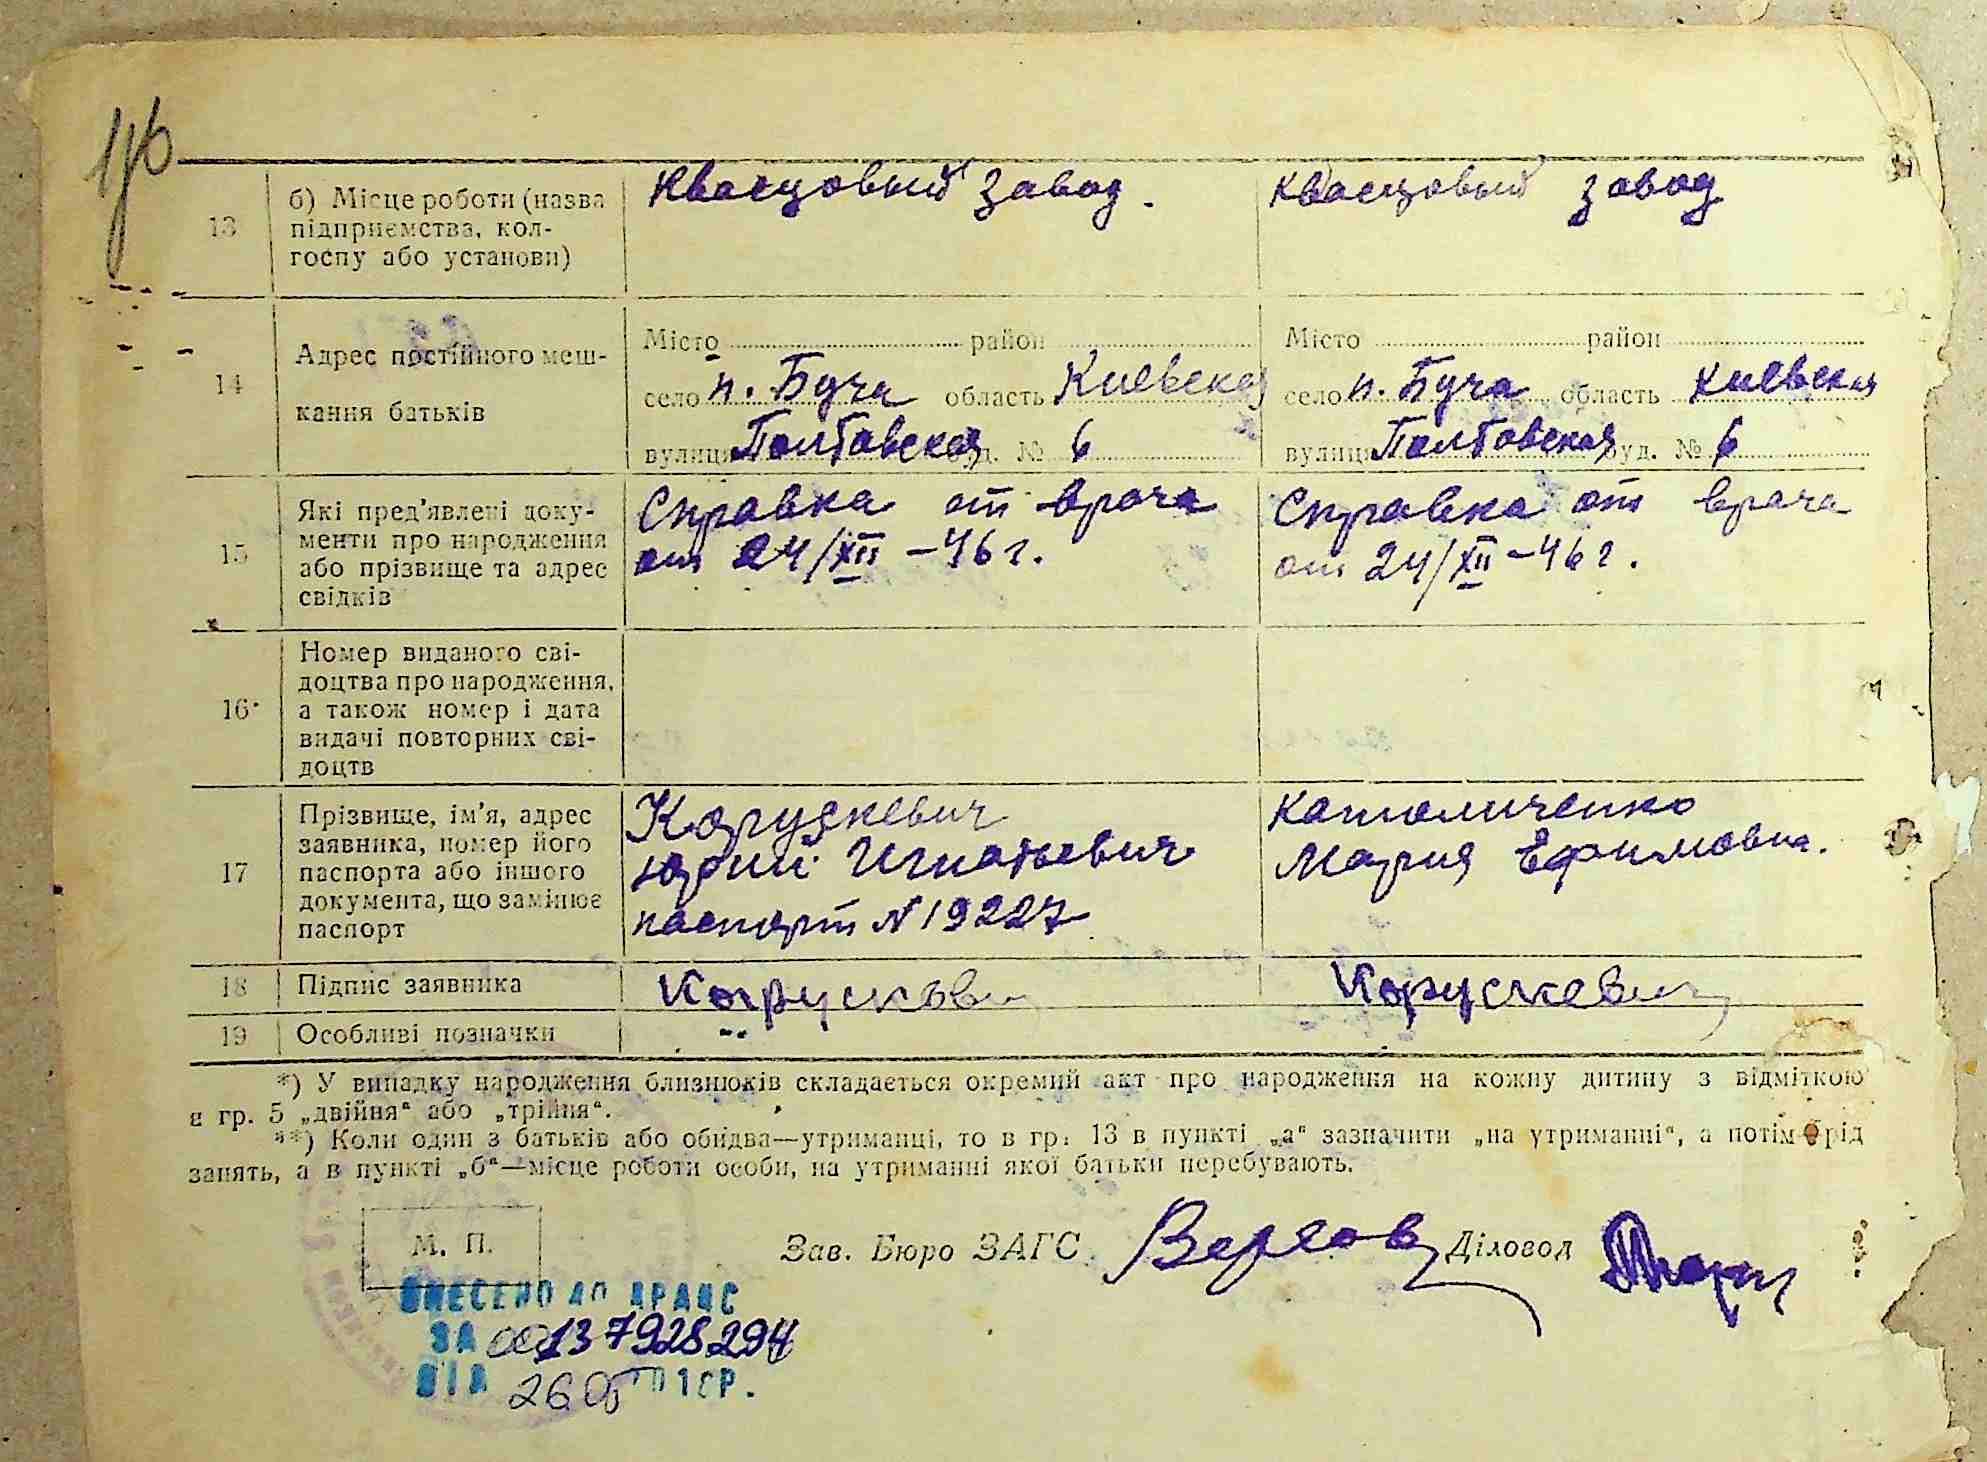 13
б) Місце роботи (назва
підприємства, кол-
госпу або установи)
Квасцовый завод.
Квасцовый завод
14
Адрес постійного меш-
кання батьків
Місто район
село п. Буча область Киевская
вулиця Полтавская буд. № 6
Місто район
село п. Буча область Киевская
вулиця Полтавская буд. № 6
15
Які пред'явлені доку-
менти про народження
або прізвище та адрес
свідків
Справка от врача
от 24/XII-46 г.
Справка от врача
от 24/XII-46 г.
16
Номер виданого сві-
доцтва про народження,
а також номер і дата
видачі повторних сві-
доцтв
17
Прізвище, ім'я, адрес
заявника, номер його
паспорта або іншого
документа, що замінює
паспорт
Корускевич
Юрий Игнатьевич
паспорт N 19227
Католиченко
Мария Ефимовна.
18
Підпис заявника
Корускевич
19
Особливі позначки
*) У випадку народження близнюків складається окремий акт про народження на кожну дитину з відміткою
в гр. 5 „двійня“ або „трійня“.
**) Коли один з батьків або обидва—утриманці, то в гр. 13 в пункті „а“ зазначити „на утриманні“, а потім рід
занять, а в пункті „б“—місце роботи особи, на утриманні якої батьки перебувають.
М. П.
Зав. Бюро ЗАГС
Діловод
ВНЕСЕНО ДО ДРАЦС
ЗА 00137928294
ВІД